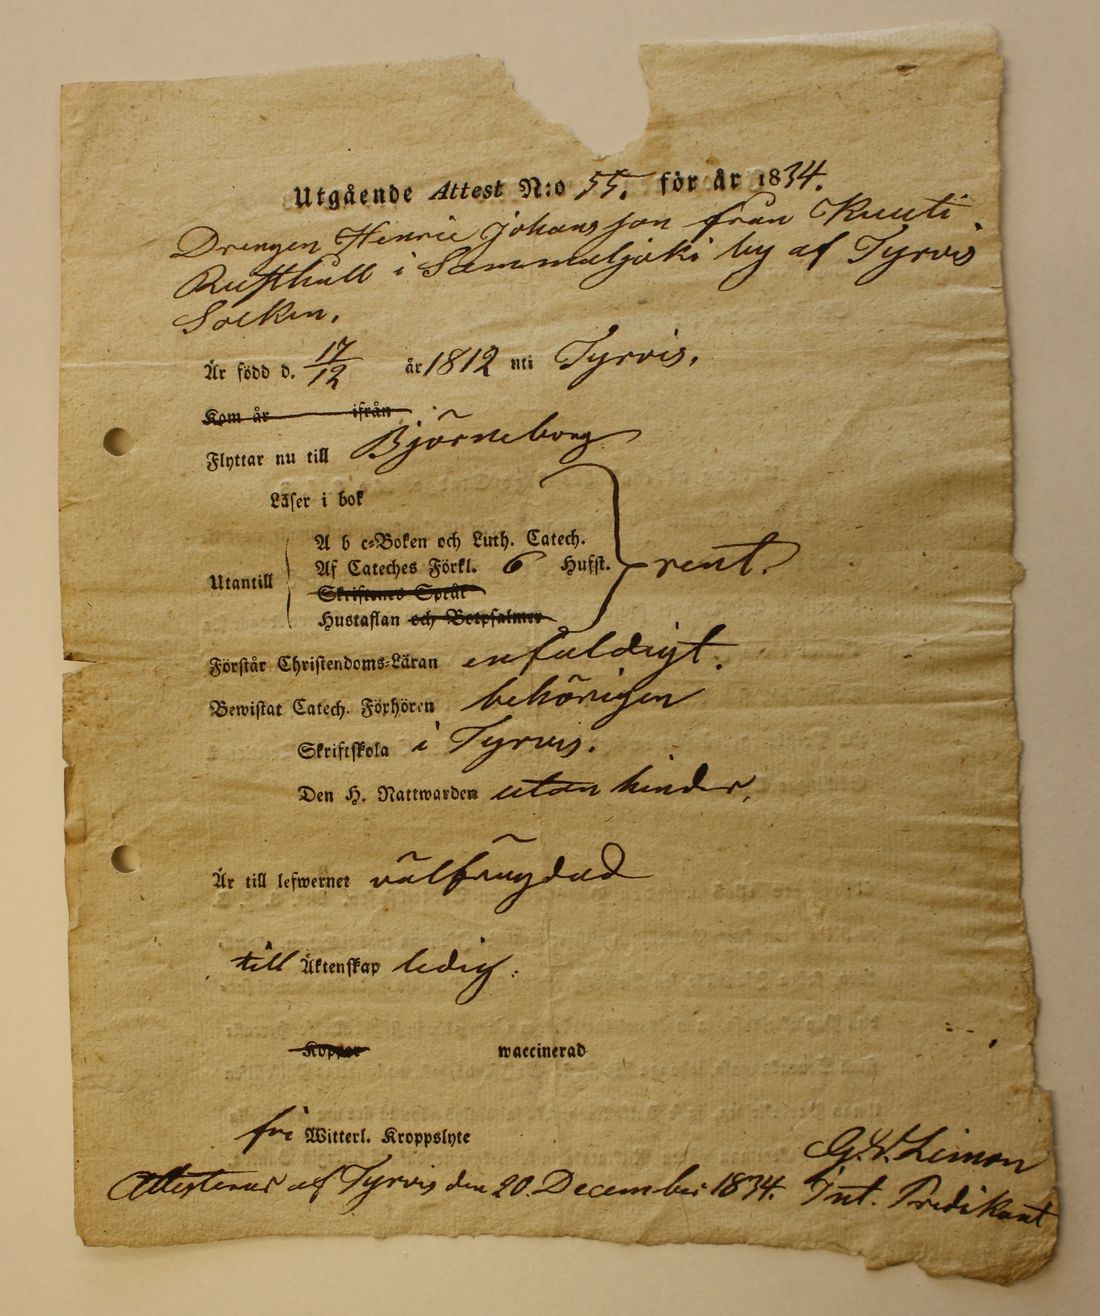 Utgående Attest N:o 55. för år 1834.
Drengen Henric Johansson från Knuti
Rusthåll i Sammaljoki by af Tyrvis
Socken.
Är född d. 17/12 år 1812 uti Tyrvis.
Kom år ifrån
Flyttar nu till Björneborg
Läser i bok
Utantill
A b c-Boken och Luth. Catech.
Af Cateches Förkl. 6 Hufst. rent.
Skriftenes Språk
Hustaflan och Botpsalmer
Förstår Christendoms-Läran enfaldigt.
Bewistat Catech. Förhören behörigen
Skriftskola i Tyrvis.
Den H. Nattwarden utan hinder,
Är till lefwernet välfrägdad
till Äktenskap ledig.
Koppor waccinerad
fri Witterl. Kroppslyte
Attesterar af Tyrvis den 20. December 1834.
G. W. Limon
Int. Predikant